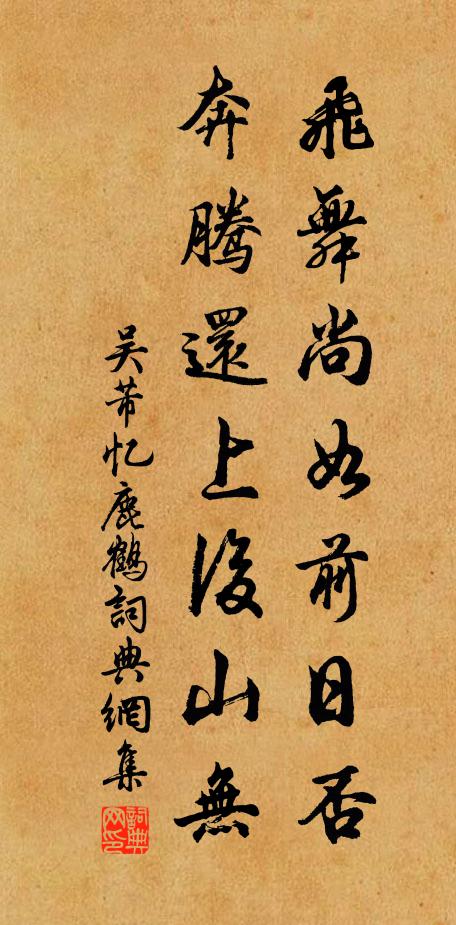 飛舞尚如前日否
奔騰還上後山無
吴芾忆鹿鶴詞典網集
詞典
网印